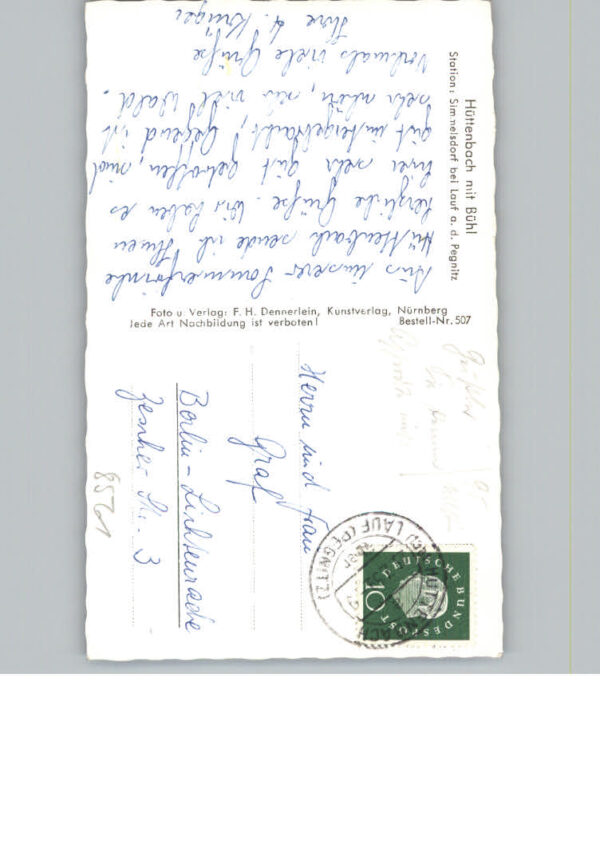 Hüttenbach mit Bühl
Station: Simmelsdorf bei Lauf a. d. Pegnitz
Aus unserer Sommerfrische
Hüttenbach sende ich Ihnen
herzliche Grüße. Wir haben es
hier sehr gut getroffen, sind
gut untergebracht, Gegend ist
sehr schön, viel Wald.
Nochmals viele Grüße
Ihre
Foto u. Verlag: F. H. Dennerlein, Kunstverlag, Nürnberg
Jede Art Nachbildung ist verboten! Bestell-Nr. 507
DEUTSCHE BUNDESPOST
10
LAUF (PEGNITZ)
Herrn und Frau
Graf
Berlin-Lichtenrade
Str. 3